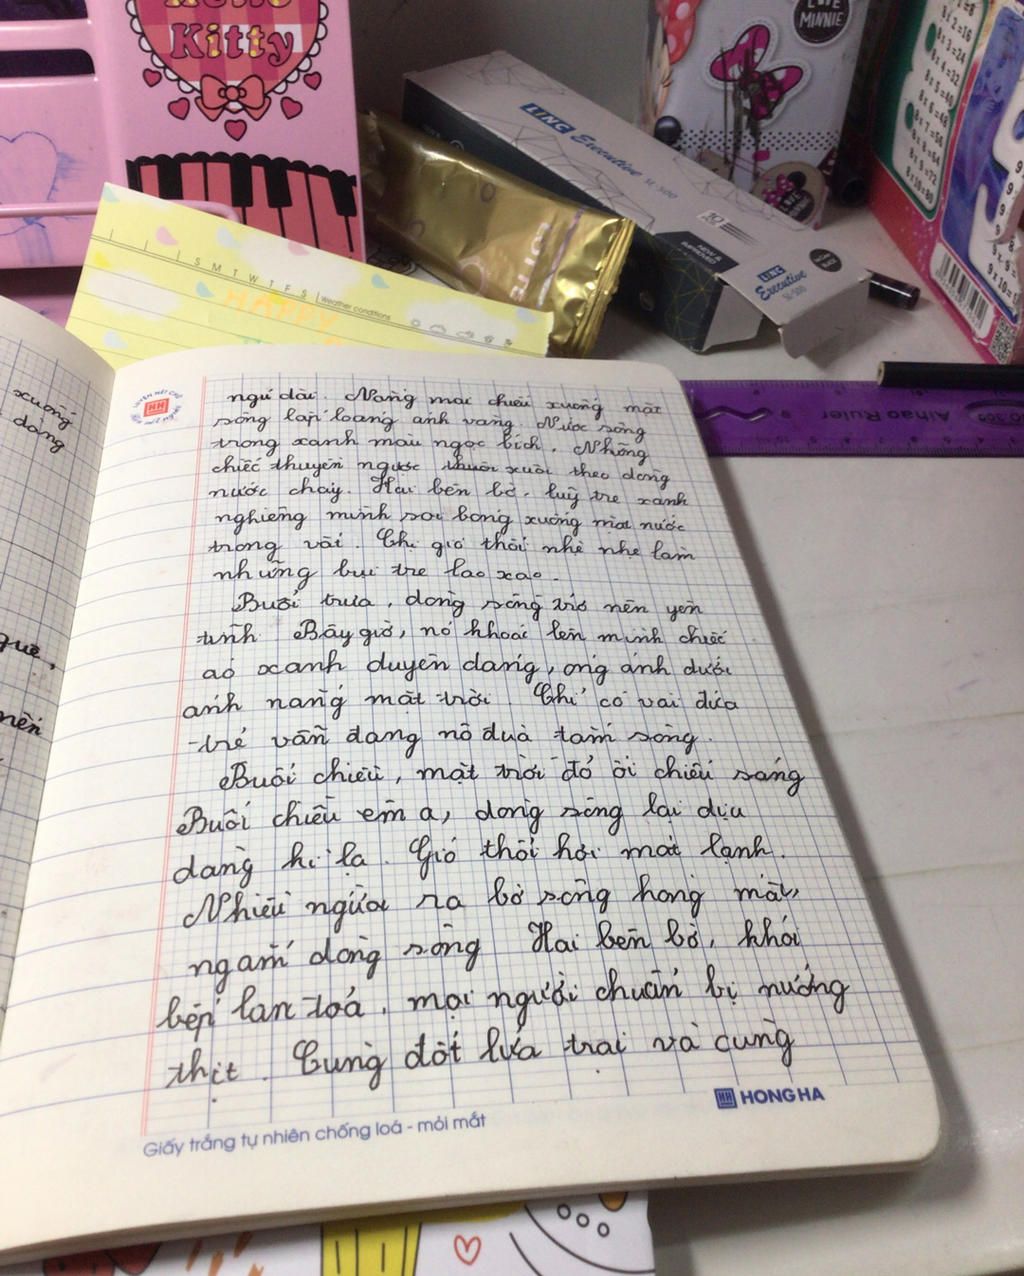 Kitty
LOVE
MINNIE
LINC Executive SL-500
NEW & IMPROVED
LINC
Executive
SL-500
8 x 2 = 16
8 x 3 = 24
8 x 4 = 32
8 x 5 = 40
8 x 6 = 48
8 x 7 = 56
8 x 8 = 64
8 x 9 = 72
8 x 10 = 80
S M T W T F S Weather conditions
HAPPY
Aihao Ruler
xuống
dòng
quê,
nên
ngủ dài. Nắng mai chiếu xuống mặt
sông lấp loáng ánh vàng. Nước sông
trong xanh màu ngọc bích. Những
chiếc thuyền ngược xuôi theo dòng
nước chảy. Hai bên bờ, luỹ tre xanh
nghiêng mình soi bóng xuống mặt nước
trong vắt. Chị gió thổi nhè nhẹ làm
những bụi tre lao xao.
Buổi trưa, dòng sông trở nên yên
tĩnh. Bây giờ, nó khoác lên mình chiếc
áo xanh duyên dáng, óng ánh dưới
ánh nắng mặt trời. Chỉ có vài đứa
trẻ vẫn đang nô đùa tắm sông.
Buổi chiều, mặt trời đỏ ối chiếu sáng
Buổi chiều êm ả, dòng sông lại dịu
dàng kì lạ. Gió thổi hơi mát lạnh.
Nhiều người ra bờ sông hóng mát,
ngắm dòng sông. Hai bên bờ, khói
bếp lan toả, mọi người chuẩn bị nướng
thịt. Cùng đốt lửa trại và cùng
HH HONG HA
Giấy trắng tự nhiên chống loá - mỏi mắt